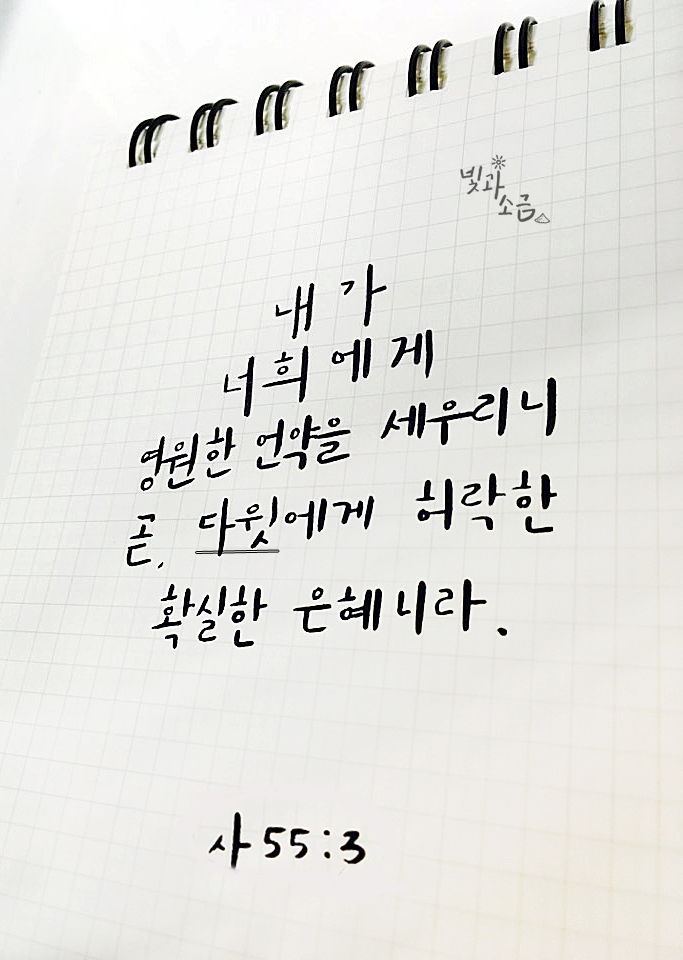 빛과
소금
내가
너희에게
영원한 언약을 세우리니
곧, 다윗에게 허락한
확실한 은혜니라.
사 55:3